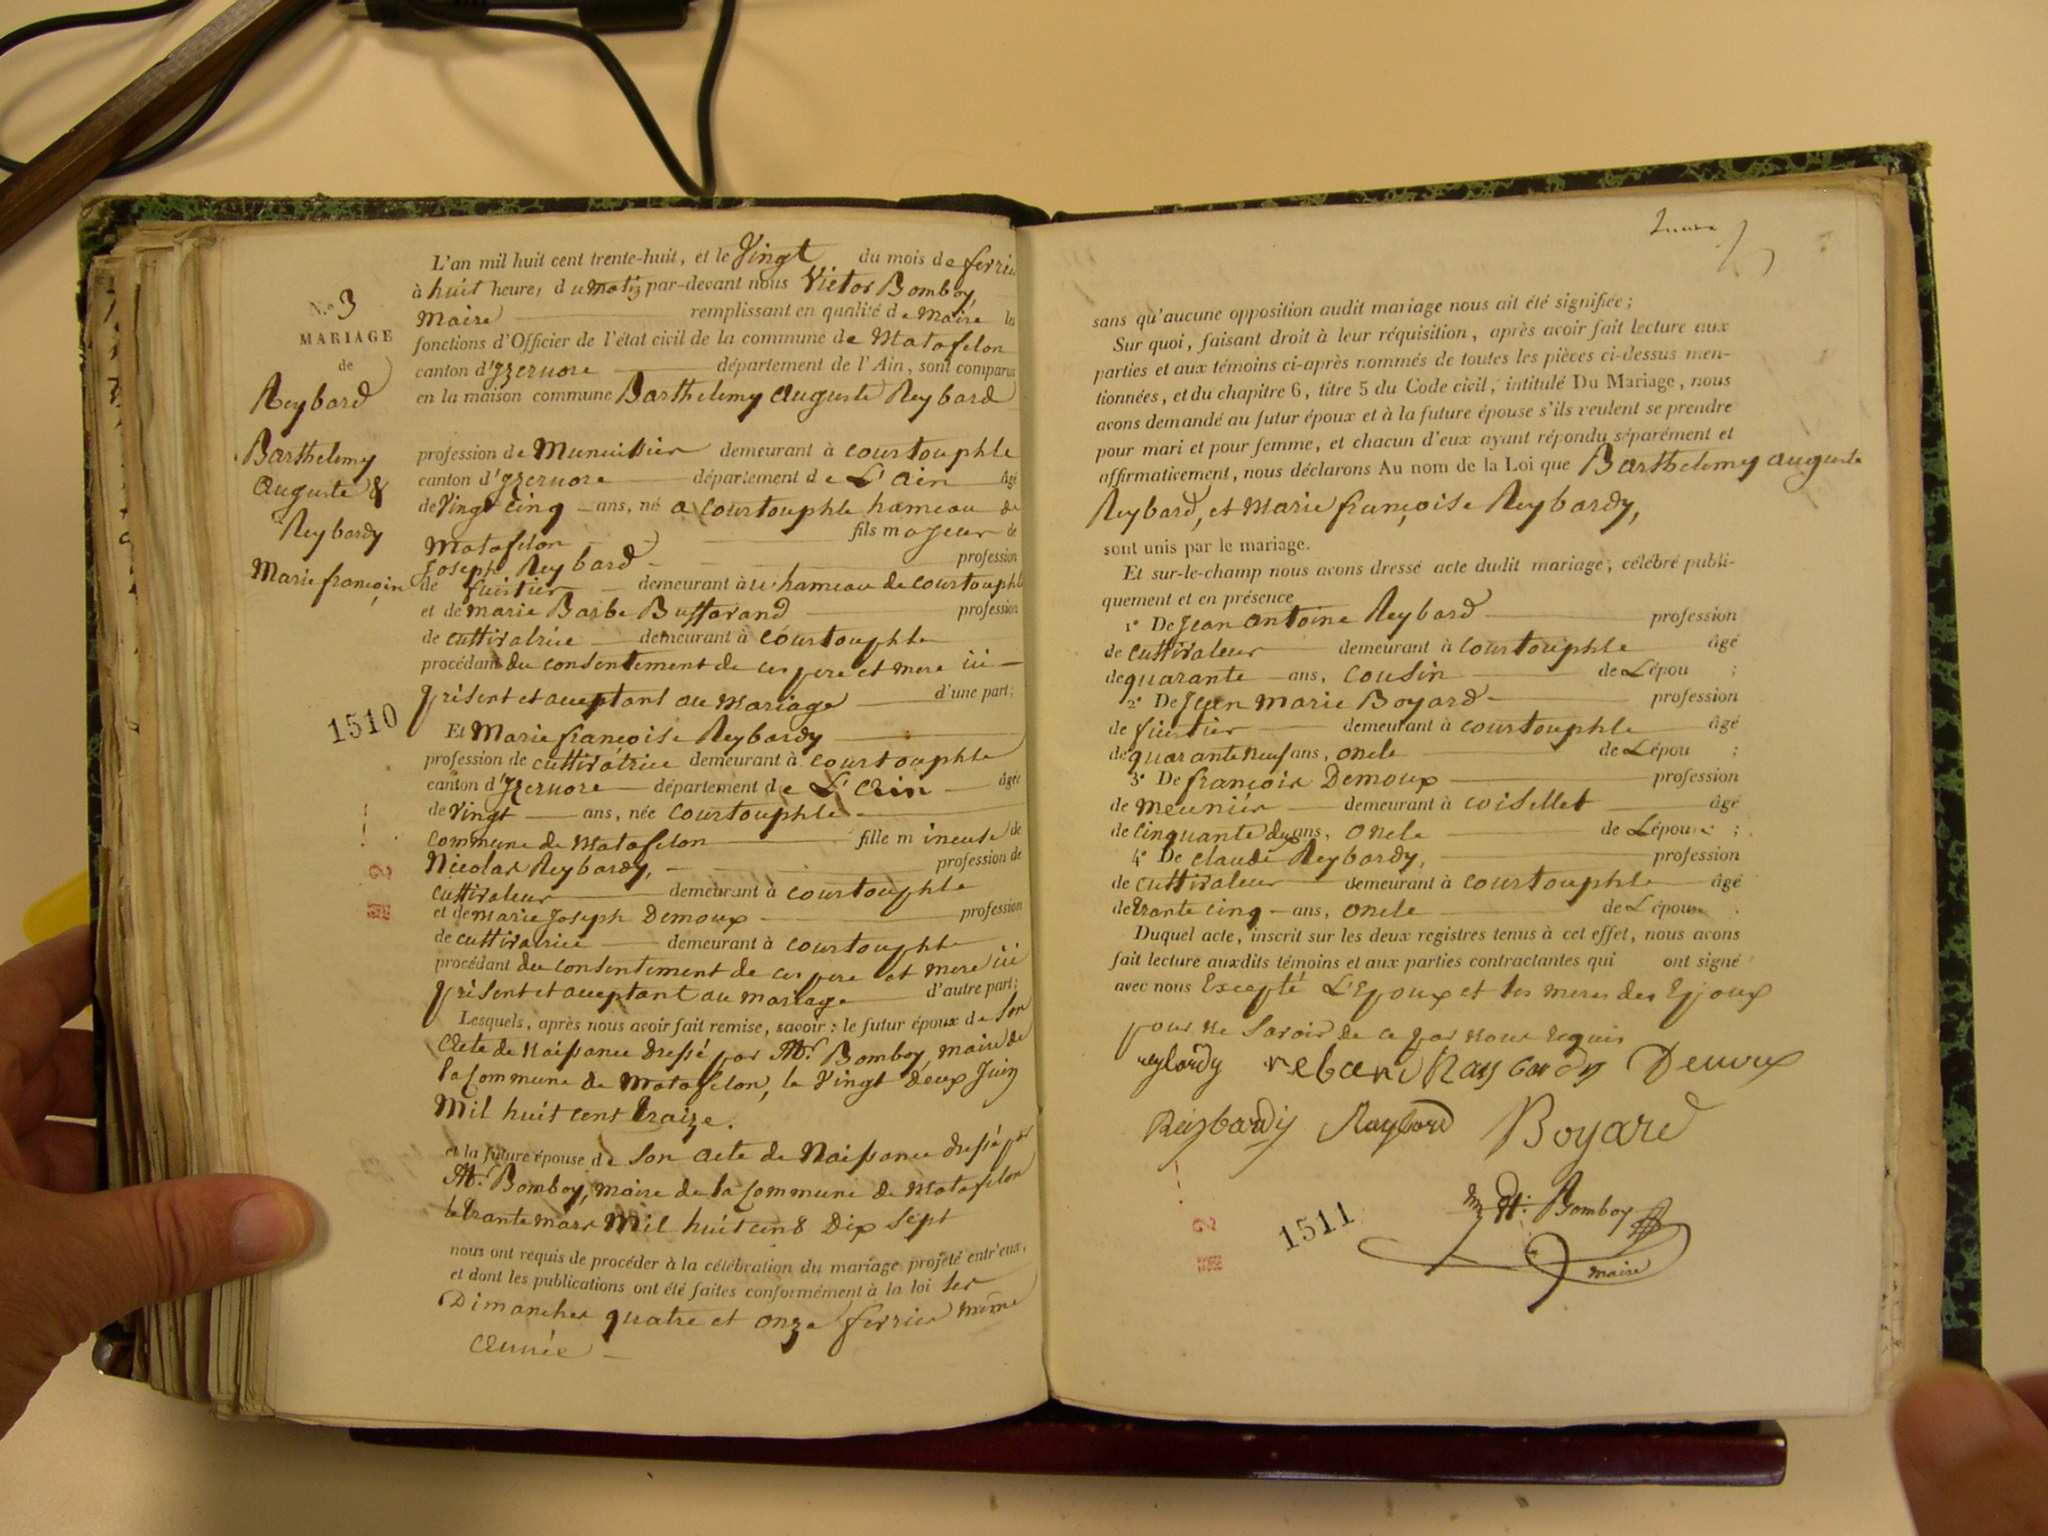 N.o 3
MARIAGE
de
Reybard
Barthelemy
Auguste &
Reybardy
Marie françoise
L'an mil huit cent trente-huit, et le Vingt du mois de fevrier
à huit heures du matin par-devant nous Victor Bomboy,
Maire remplissant en qualité de Maire les
fonctions d'Officier de l'état civil de la commune de Matafelon
canton d'Yzernore département de l'Ain, sont comparus
en la maison commune Barthelemy Auguste Reybard
profession de Menuisier demeurant à Courtouphle
canton d'Yzernore département de L'Ain âgé
de Vingt cinq ans, né à Courtouphle hameau de
Matafelon fils majeur de
Joseph Reybard profession
de demeurant à au hameau de Courtouphle
et de Marie Barbe Buffavand profession
de cultivatrice demeurant à Courtouphle
procédant du consentement de ces pere et mere ici
présent et acceptant au mariage d'une part;
1510
Et Marie françoise Reybardy
profession de cultivatrice demeurant à Courtouphle
canton d'Yzernore département de L'Ain âgée
de Vingt ans, née Courtouphle
commune de Matafelon fille mineuse de
Nicolas Reybardy, profession de
cultivateur demeurant à Courtouphle
et de Marie Joseph Demoux profession
de cultivatrice demeurant à Courtouphle
procédant du consentement de ces pere et mere ici
présent et acceptant au mariage d'autre part;
Lesquels, après nous avoir fait remise, savoir: le futur époux de Son
Acte de Naissance dressé par Mr Bomboy, maire de
la Commune de Matafelon, le Vingt deux Juin
Mil huit cent traize.
et la future épouse de Son acte de Naissance dressé par
Mr Bomboy, maire de la Commune de Matafelon
le trante mars Mil huit cent Dix Sept
nous ont requis de procéder à la célébration du mariage projeté entr'eux,
et dont les publications ont été faites conformément à la loi les
Dimanches quatre et onze fevrier même
Année
sans qu'aucune opposition audit mariage nous ait été signifiée;
Sur quoi, faisant droit à leur réquisition, après avoir fait lecture aux
parties et aux témoins ci-après nommés de toutes les pièces ci-dessus men-
tionnées, et du chapitre 6, titre 5 du Code civil, intitulé Du Mariage, nous
avons demandé au futur époux et à la future épouse s'ils veulent se prendre
pour mari et pour femme, et chacun d'eux ayant répondu séparément et
affirmativement, nous déclarons Au nom de la Loi que Barthelemy Auguste
Reybard, et Marie françoise Reybardy,
sont unis par le mariage.
Et sur-le-champ nous avons dressé acte dudit mariage, célébré publi-
quement et en présence
1° De Jean Antoine Reybard profession
de cultivateur demeurant à Courtouphle âgé
de quarante ans, Cousin de L'épou ;
2° De Jean Marie Boyard profession
de demeurant à Courtouphle âgé
de quarante neuf ans, oncle de L'épou ;
3° De françois Demoux profession
de meunier demeurant à Coisellet âgé
de cinquante deux ans, oncle de L'épouse ;
4° De Claude Reybardy, profession
de cultivateur demeurant à Courtouphle âgé
de trante cinq ans, oncle de L'épouse
Duquel acte, inscrit sur les deux registres tenus à cet effet, nous avons
fait lecture auxdits témoins et aux parties contractantes qui ont signé
avec nous Excepté L'Epoux et les meres des Epoux
pour ne Savoir de ce par nous requis
reybardy rebard Raybardy Demoux
Reybardy Raybard Boyard
1511
Bomboy
maire